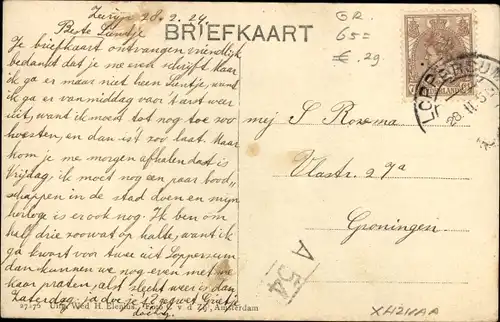 Zerijp 28.2.24
Beste Lientje
BRIEFKAART
GR.
65=
€ .29
Je briefkaart ontvangen vriendelijk
bedankt dat je me eerst schrijft Maar
ik ga er maar niet heen Lientje, want
ik ga er van middag voor 't eerst weer
uit, want ik moet tot nog toe zoo
hoesten, en dan is 't zoo laat. Maar
kom je me morgen afhalen dat is
Vrijdag, ik moet nog een paar bood„
schappen in de stad doen en mijn
horloge is er ook nog. Ik kom om
half drie zoowat op halte, want ik
ga kwart voor twee uit Loppersum
dan kunnen we nog even met me
kaar praten, als slecht weer is dan
Zaterdag, ja doe je 't? gegroet Grietje
doeboeg.
mej S Rozema
Vlastr. 27a
Groningen
LOPPERSUM
28.II
A 54
XH21KAA
27276 Uitg. Wed H. Elenius, Foto C. v. d. Zij, Amsterdam